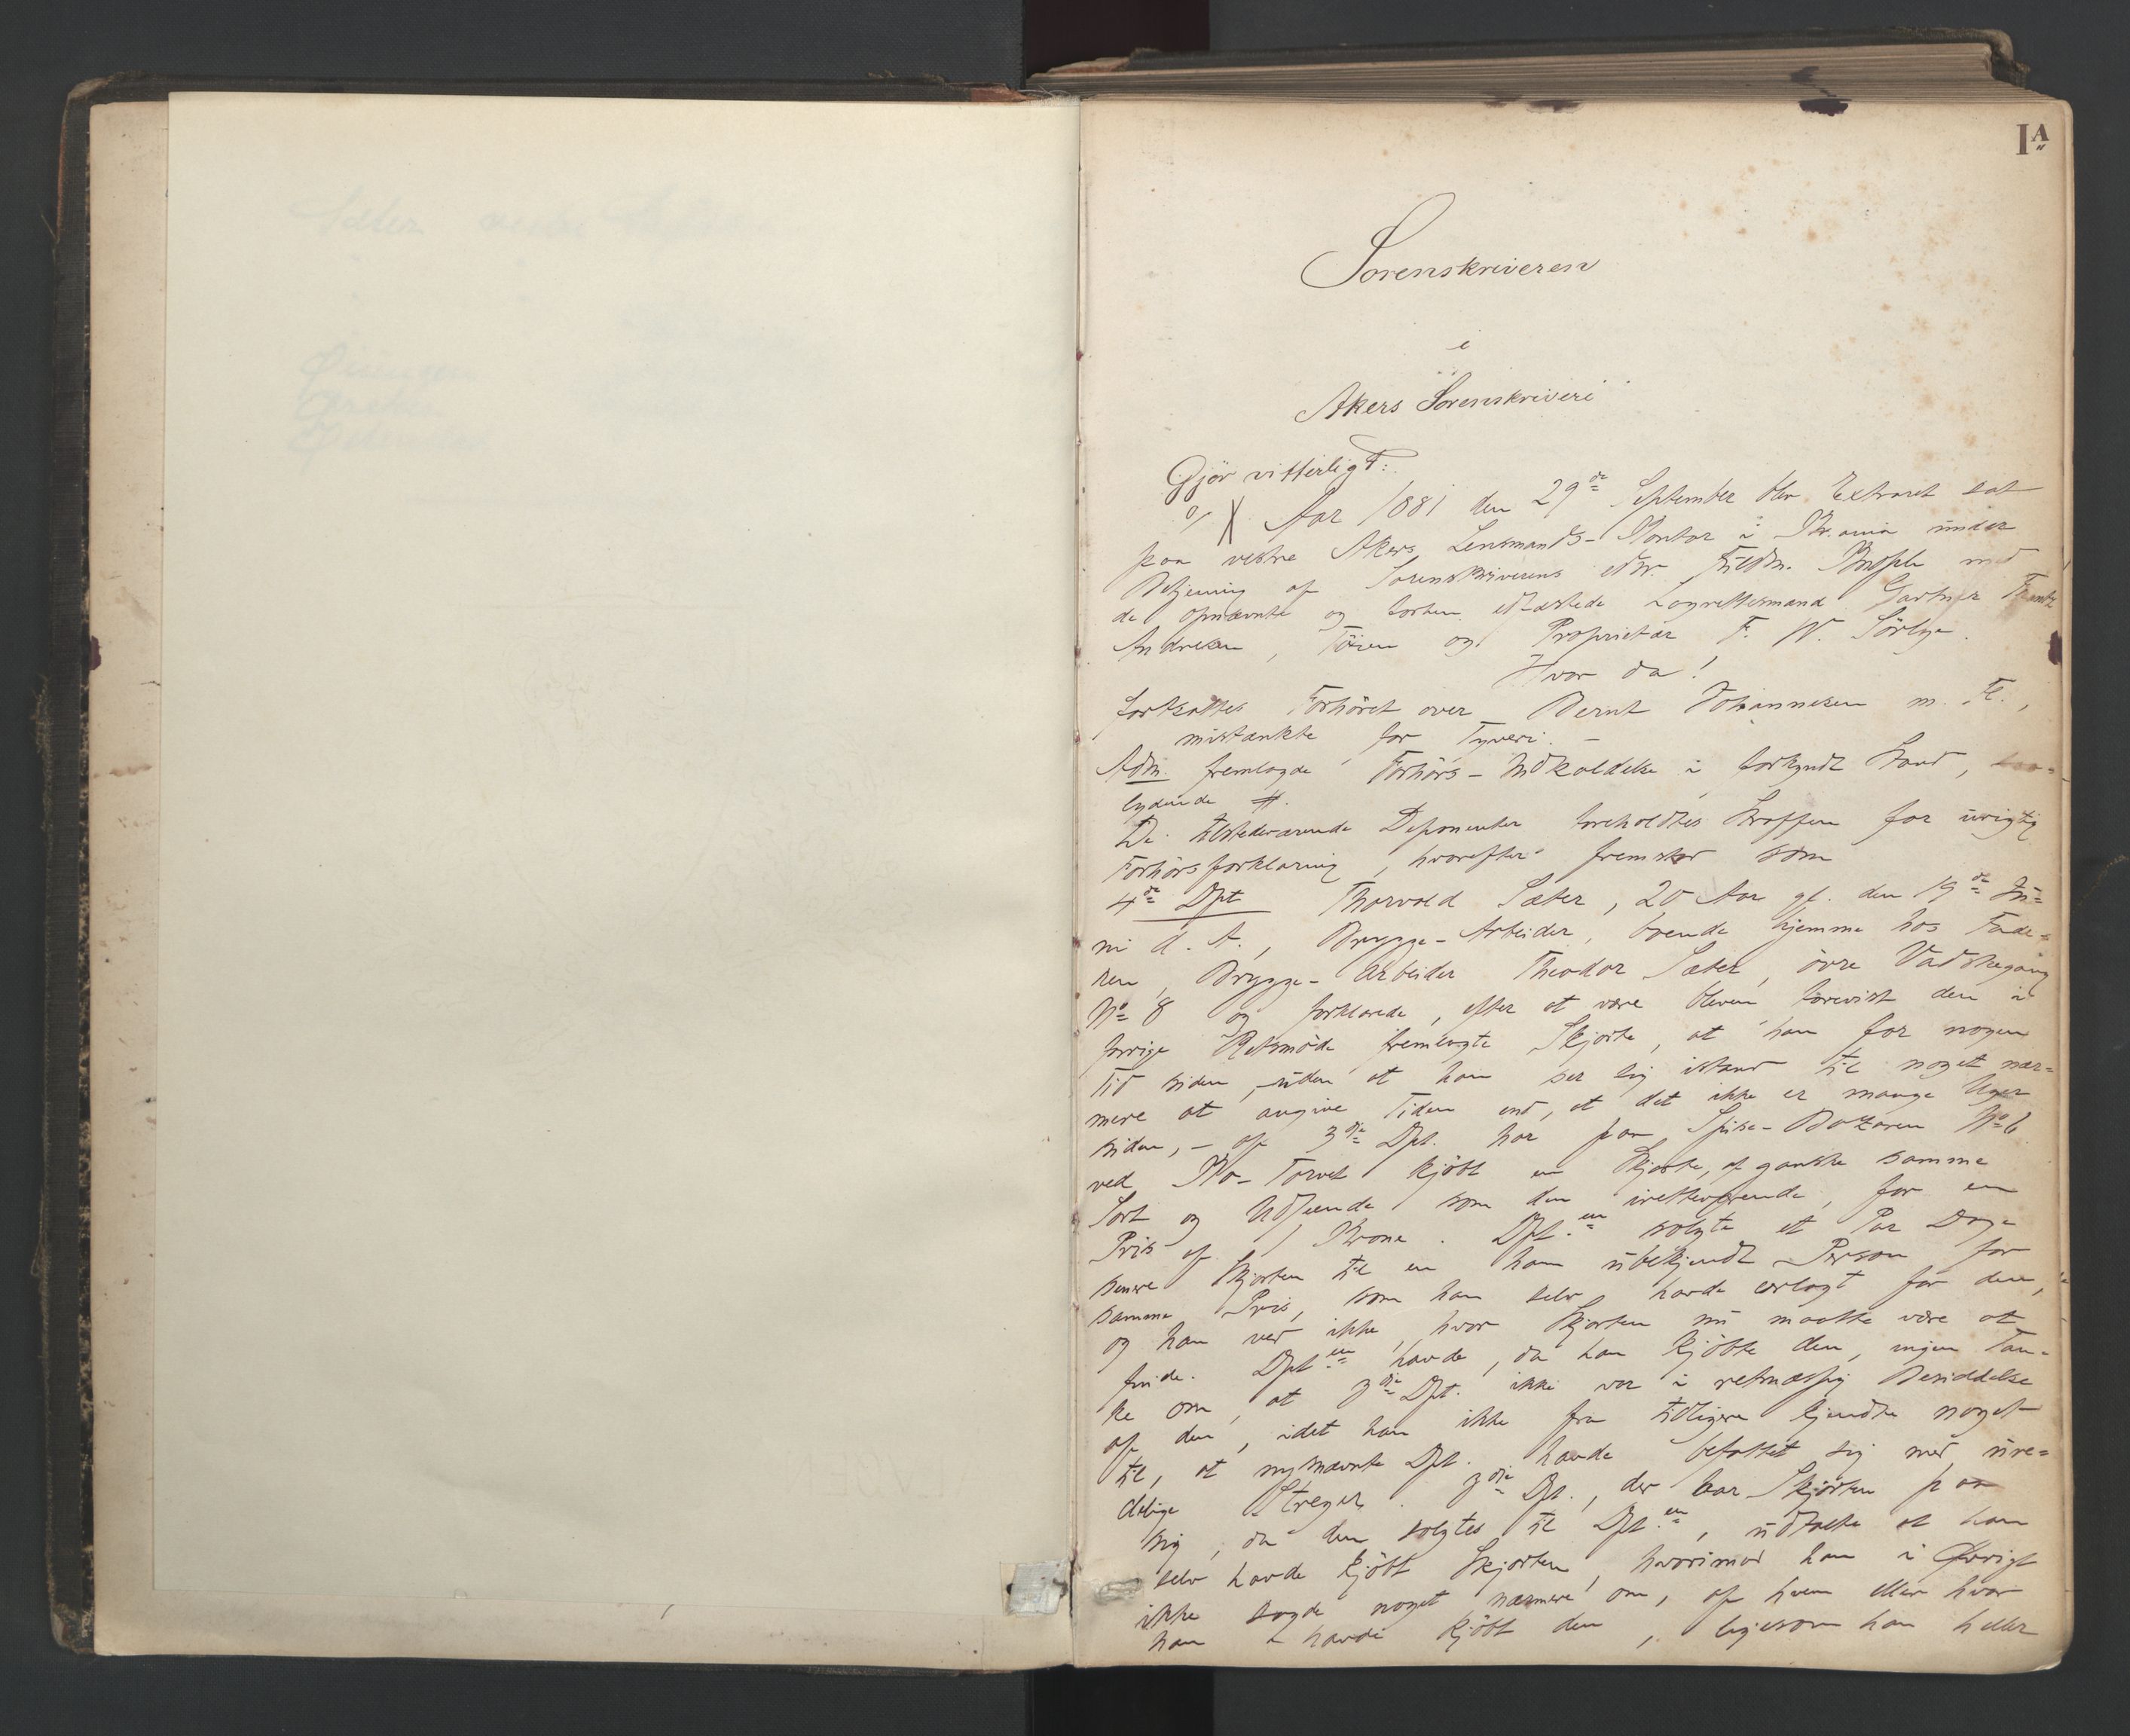 I A
Sorenskriveren
i
Akers Sorenskriveri
Gjör vitterligt:
Aar 1881 den 29de September blev Extraret sat
paa vestre Akers Lensmands-Kontor i Kr.ania under
Betjening af Sorenskriverens edsv. Fuldm. med
de opnævnte og forhen edfæstede Lagrettesmænd Gartner Frantz
Andresen, Töien og Proprietær F. W. Sörbye.
Hvor da!
fortsattes Forhöret over Bernt Johannesen m. Fl.,
mistænkte for Tyveri. -
Adm. fremlagde Forhörs-Indkaldelse i forkyndt Stand, saa=
lydende #.
De tilstedeværende Deponenter foreholdtes Straffen for urigtig
Forhörsforklaring, hvorefter fremstod som
4de Dpt Thorvald Sæter, 20 Aar gl. den 19de Ju=
ni d. A., Brygge-Arbeider, boende hjemme hos Fade=
ren, Brygge-Arbeider Theodor Sæter, övre Vadskegang
No 8 og forklarede, efter at være bleven forevist den i
forrige Retsmöde fremlagte Skjorte, at han for nogen
Tid siden, - uden at han ser sig istand til noget nær=
mere at angive Tiden end, at det ikke er mange Uger
siden, - af 3die Dpt. har paa Spise-Bazaren No 6
ved Ny-Torvet kjöbt en Skjorte, af ganske samme
Sort og Udseende som den iretteværende, for en
Pris af 1 Krone. Dpt.en solgte et Par Dage
senere Skjorten til en ham ubekjendt Person for
samme Pris, som han selv havde erlagt for den,
og han ved ikke, hvor Skjorten nu maatte være at
finde. Dpt.en havde, da han kjöbte den, ingen Tan=
ke om, at 3die Dpt. ikke var i retmæssig Besiddelse
af den, idet han ikke fra tidligere kjendte noget
til, at nysnævnte Dpt. havde befattet sig med ure=
delige Streger. 3die Dpt., der bar Skjorten paa
sig, da den solgtes til Dpt.en, udtalte at han
selv havde kjöbt Skjorten, hvorimod han i Øvrigt
ikke sagde noget nærmere om, af hvem eller hvor
han havde kjöbt den, ligesom han heller